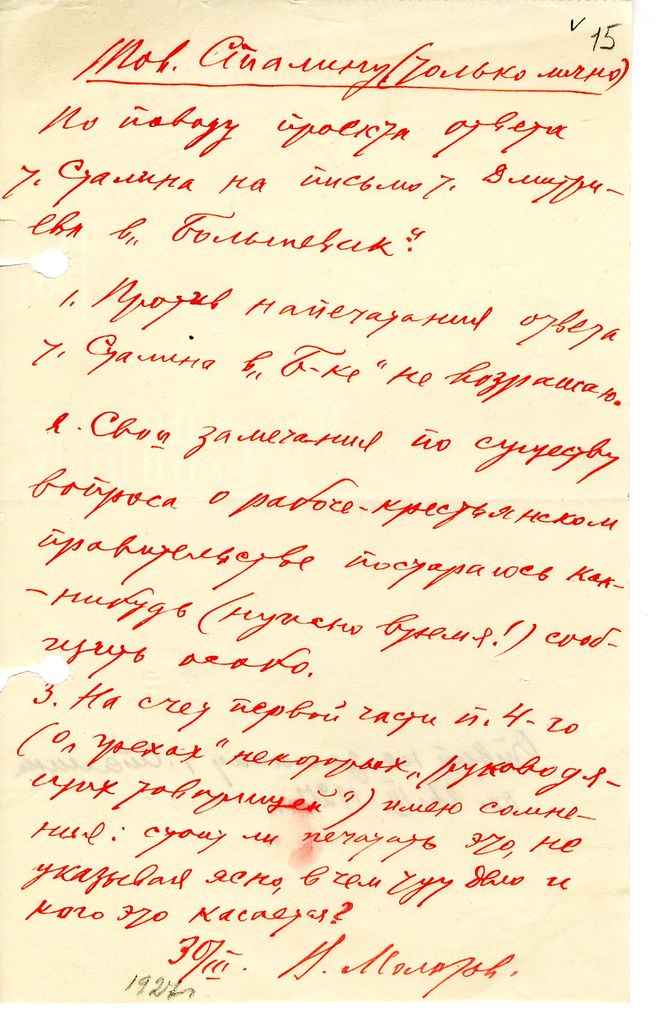 15
Тов. Сталину (только лично)
По поводу проекта ответа
т. Сталина на письмо т. Дмитри-
ева в „Большевик“:
1. Против напечатания ответа
т. Сталина в „Б-ке“ не возражаю.
2. Свои замечания по существу
вопроса о рабоче-крестьянском
правительстве постараюсь как-
-нибудь (нужно время!) сооб-
щить особо.
3. На счет первой части п. 4-го
(о „грехах“ некоторых „руководя-
щих товарищей“) имею сомне-
ния: стоит ли печатать это, не
указывая ясно, в чем тут дело и
кого это касается?
30/III. В. Молотов.
1927г